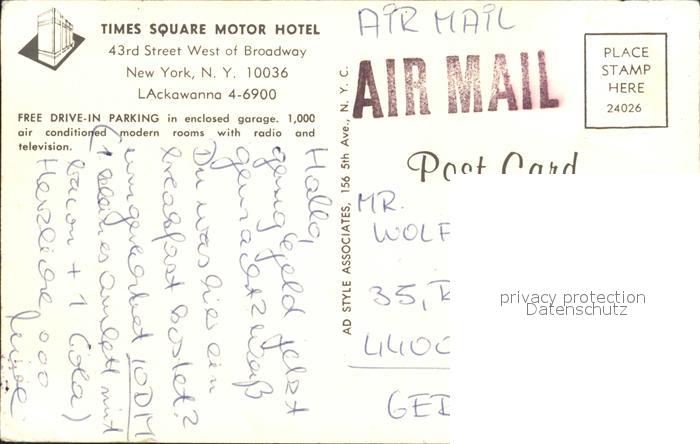 TIMES SQUARE MOTOR HOTEL
43rd Street West of Broadway
New York, N. Y. 10036
LAckawanna 4-6900
FREE DRIVE-IN PARKING in enclosed garage. 1,000
air conditioned modern rooms with radio and
television.
Hallo,
genug Geld jetzt
gemacht? Weiß
Du was hier ein
breakfast kostet?
umgerechnet 10 DM
(1 kleines omlett mit
bacon + 1 Cola)
Herzliche
AD STYLE ASSOCIATES, 156 5th Ave., N. Y. C.
AIR MAIL
AIR MAIL
PLACE
STAMP
HERE
24026
Post Card
MR.
WOLF
35,
4400
GED
privacy protection
Datenschutz